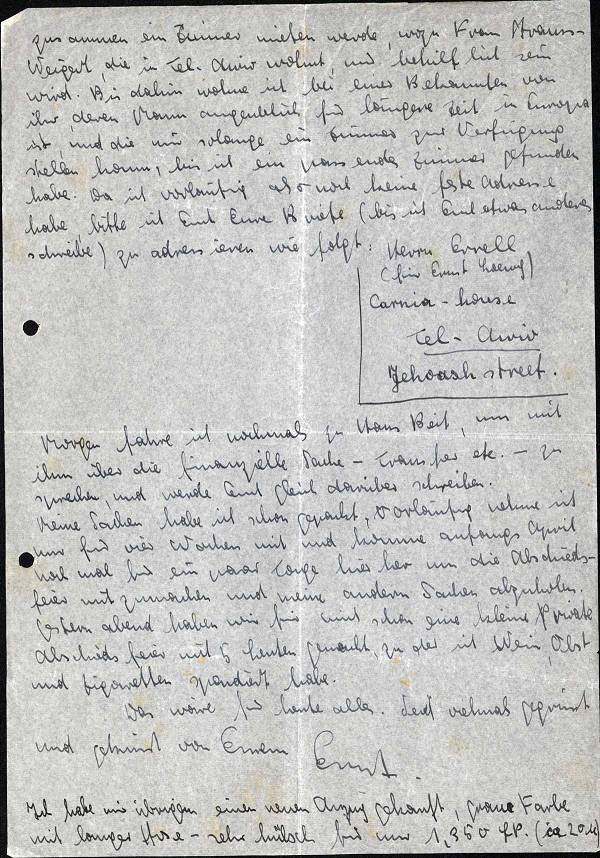 zusammen ein Zimmer mieten werde, wozu Frau Strauss-
Weigert, die in Tel. Aviv wohnt, mir behilflich sein
wird. Bis dahin wohne ich bei einer Bekannten von
ihr, deren Mann augenblicklich für längere Zeit in Europa
ist, und die mir solange ein Zimmer zur Verfügung
stellen kann, bis ich ein passendes Zimmer gefunden
habe. Da ich vorläufig also noch keine feste Adresse
habe, bitte ich Euch Eure Briefe (bis ich Euch etwas anderes
schreibe) zu adressieren wie folgt:
Herrn Errell
(für Ernst Loewy)
Carnia-house
Tel-Aviv
Jehoash street.
Morgen fahre ich nochmals zu Hans Beit, um mit
ihm über die finanzielle Sache - Transfer etc. - zu
sprechen, und werde Euch gleich darüber schreiben.
Meine Sachen habe ich schon gepackt, vorläufig nehme ich
nur für vier Wochen mit und komme anfangs April
noch mal für ein paar Tage hier her um die Abschieds-
feier mitzumachen und meine anderen Sachen abzuholen.
Gestern abend haben wir für mich schon eine kleine Private
Abschiedsfeier mit 5 Leuten gemacht, zu der ich Wein, Obst
und Zigaretten spendiert habe.
Das wäre für heute alles. Seid vielmals gegrüsst
und geküsst von Eurem Ernst.
Ich habe mir übrigens einen neuen Anzug gekauft, graue Farbe
mit langer Hose - sehr hübsch für nur 1,350 £P. (ca 20 M)